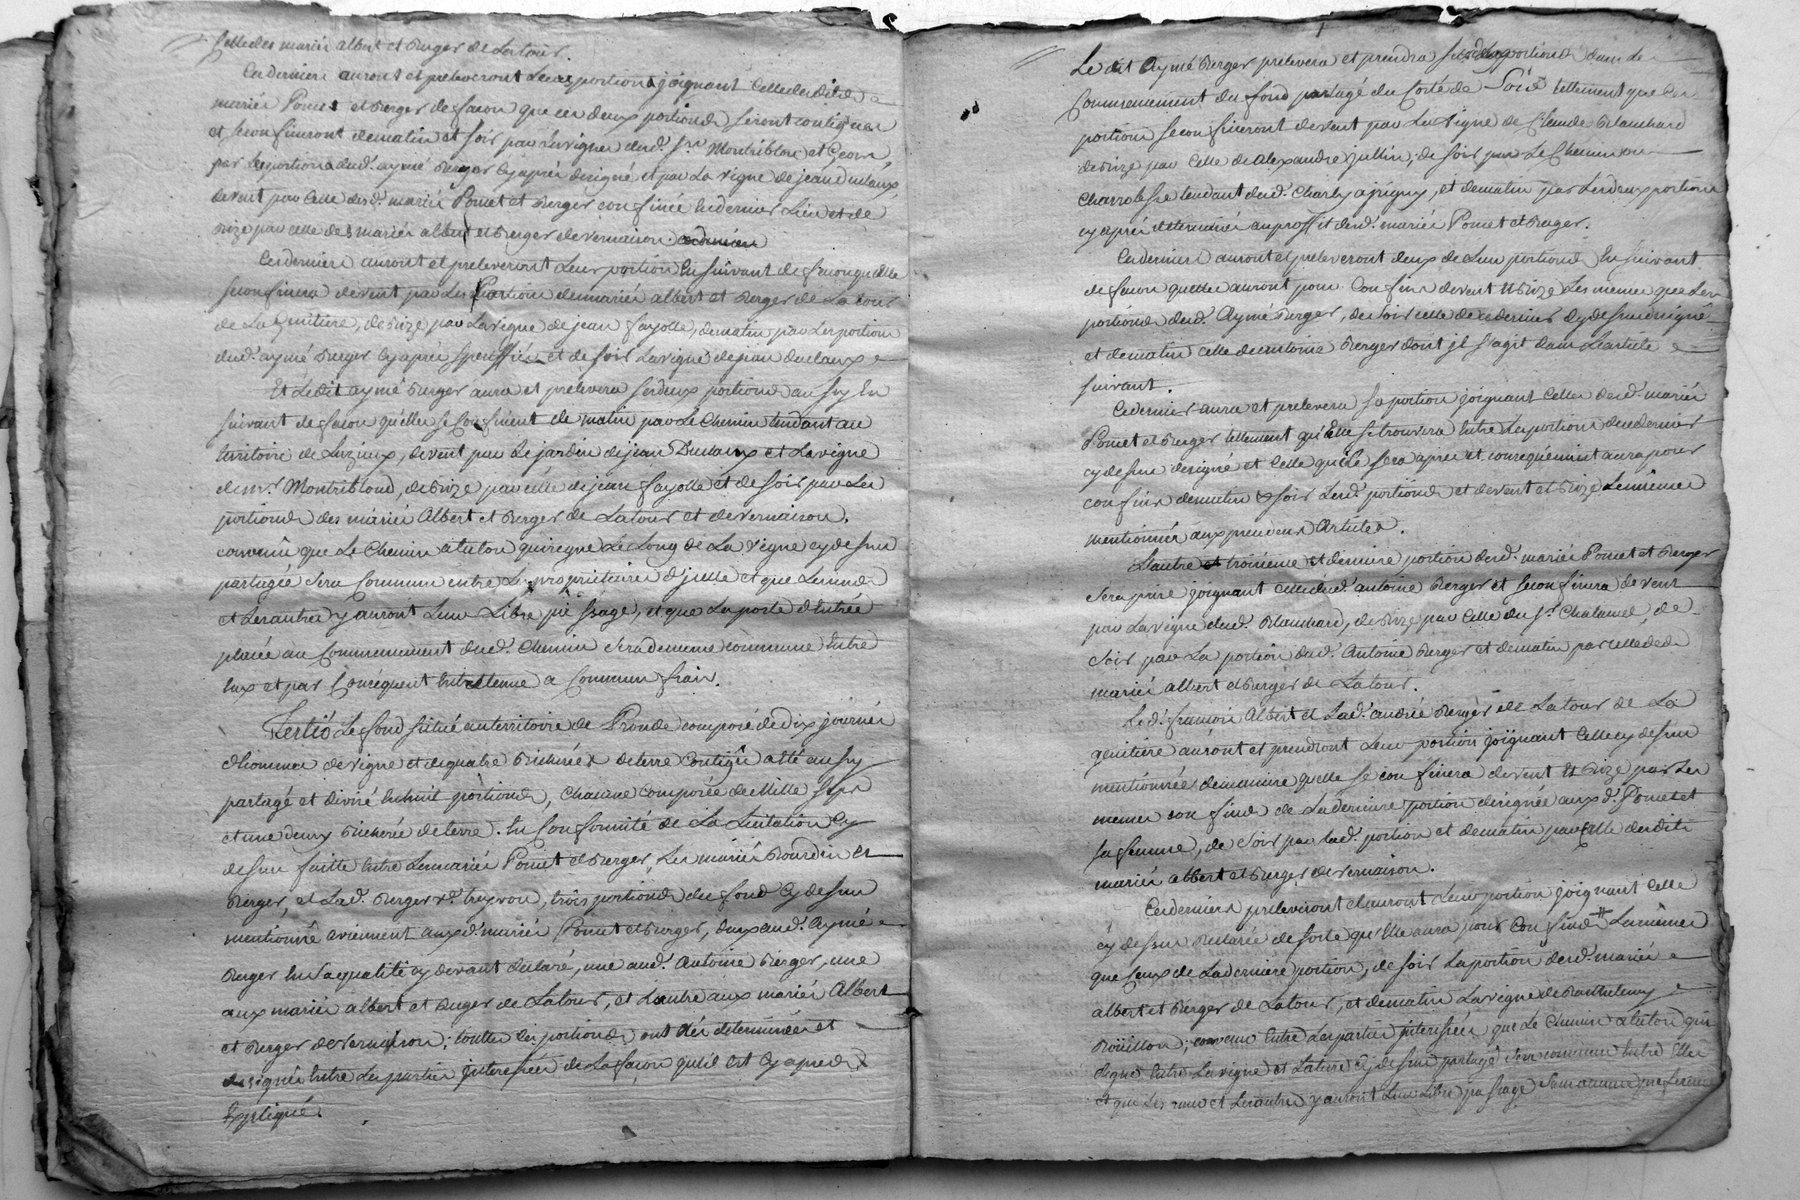 celle des mariés albert et Berger de Latour.
Ces derniers auront et preleveront Leurs portions joignant Celle desdits
mariés Pomet et Berger de facon que ces deux portions seront contigues
et se confineront de matin et soir par la vigne dud. sr. Montriblond et
par les portions dud. aymé Berger cy après designé et par La vigne de jean duclaux
de vent par celle desd. mariés Pomet et Berger confinée en dernier Lieu et de
bize par celle des mariés albert et Berger de vernaison.
Ces derniers auront et preleveront Leur portion en suivant de facon quelle
se confinera de vent par Les Portions de mariés albert et Berger de La tour
de La , de bize par La vigne de jean fayolle, de matin par Les portions
dud. aymé Berger cy après speciffiés et de soir La vigne de jean duclaux
Et Le dit aymé Berger aura et prelevera ses deux portions aussy en
suivant de facon quelles se confinent de matin par Le Chemin tendant au
territoire de Luzieux, de vent par Le jardin de jean Duclaux et La vigne
de mr. Montriblond, de bize par celle de jean fayolle et de soir par Les
portions des mariés Albert et Berger de Latour et de vernaison.
convenû que Le Chemin a talon qui regne Le Long de La vigne cy dessus
partagée sera Commun entre Les proprietaires d'jcelle et que Les uns
et Les autres y auront Leur Libre passage, et que La porte d'entrée
placée au Commencement dud. Chemin sera de meme commune entre
eux et par Conséquent entretenue a Commun frais.
Tertiò Le fond situé au territoire de Pronde composé de dix journées
d'hommes de vigne et de quatre bicherées de terre contigû a été aussy
partagé et divisé en huit portions, chacune composée de Mille seps
et une demy bicherée de terre. En Conformité de La Licitation cy
dessus faitte entre Les mariés Pomet et Berger, Les mariés Bourdin et
Berger, et Lad. Berger ve. , trois portions du fond Cy dessus
mentionné aviennent auxd. mariés Pomet et Berger, deux aud. Aymé
Berger en sa qualité cy devant declaré, une aud. Antoine Berger, une
aux mariés albert et Berger de Latour, et L'autre aux mariés Albert
et Berger de vernaison; toutes Les portions ont étés determinées et
designées entre Les parties jnteressées de La facon qu'il est Cy après
Expliqué.
Le dit Aymé Berger prelevera et prendra ses deux portions dans Le
Commencement du fond partagé du Coté de Soir tellement que Les
portions se confineront de vent par La vigne de Claude Blanchard
de bize par Celle de Alexandre jullien, de soir par Le Chemin ou
Charrobesse tendant dud. Charly a jrigny, et de matin par Les deux portions
cy après determinées au proffit desd. mariés Pomet et Berger.
Ces derniers auront et preleveront deux de Leur portions En suivant
de facon quelles auront pour Confins de vent et bize Les memes que Les
portions dud. Aymé Berger, de soir celle de ce dernier cy dessus designé
et de matin celle de antoine Berger dont jl s'agit dans L'article
suivant.
Ce dernier aura et prelevera sa portion joignant Celles desd. mariés
Pomet et Berger tellement qu'Elle se trouvera Entre Les portions des derniers
cy dessus designé et Celle qui Le sera après et conséquemment aura pour
confins de matin & soir Lesd. portions et de vent et bize Les mêmes
mentionnés aux precedens Articles.
L'autre et troisieme et derniere portion desd. mariés Pomet et Berger
sera prise joignant celle dud. antoine Berger et se confinera de vent
par La vigne dud. Blanchard, de bize par Celle du sr. Chalamel, de
soir par La portion dud. Antoine Berger et de matin par celle des
mariés albert et Berger de Latour.
Le d. francois Albert et Lad. andrée Berger de La tour de La
auront et prendront Leur portion joignant Celle cy dessus
mentionnée de maniere quelle se confinera de vent et bize par Les
memes confins de La derniere portion designée auxd. Pomet et
sa femme, de soir par lad. portion et de matin par celle desdits
mariés albert et Berger de vernaison.
Ces derniers preleveront et auront Leur portion joignant celle
cy dessus de sorte qu'Elle aura pour Confins Les mêmes
que Ceux de La derniere portion, de soir La portion desd. mariés
albert et Berger de Latour, et de matin La vigne de Barthelemy
Boüillon; convenu Entre Les parties jnteressées que Le Chemin a talon qui
regne Entre La vigne et La terre cy dessus partagé sera commun Entre Elles
et que Les uns et Les autres y auront Leur Libre passage sans aucun